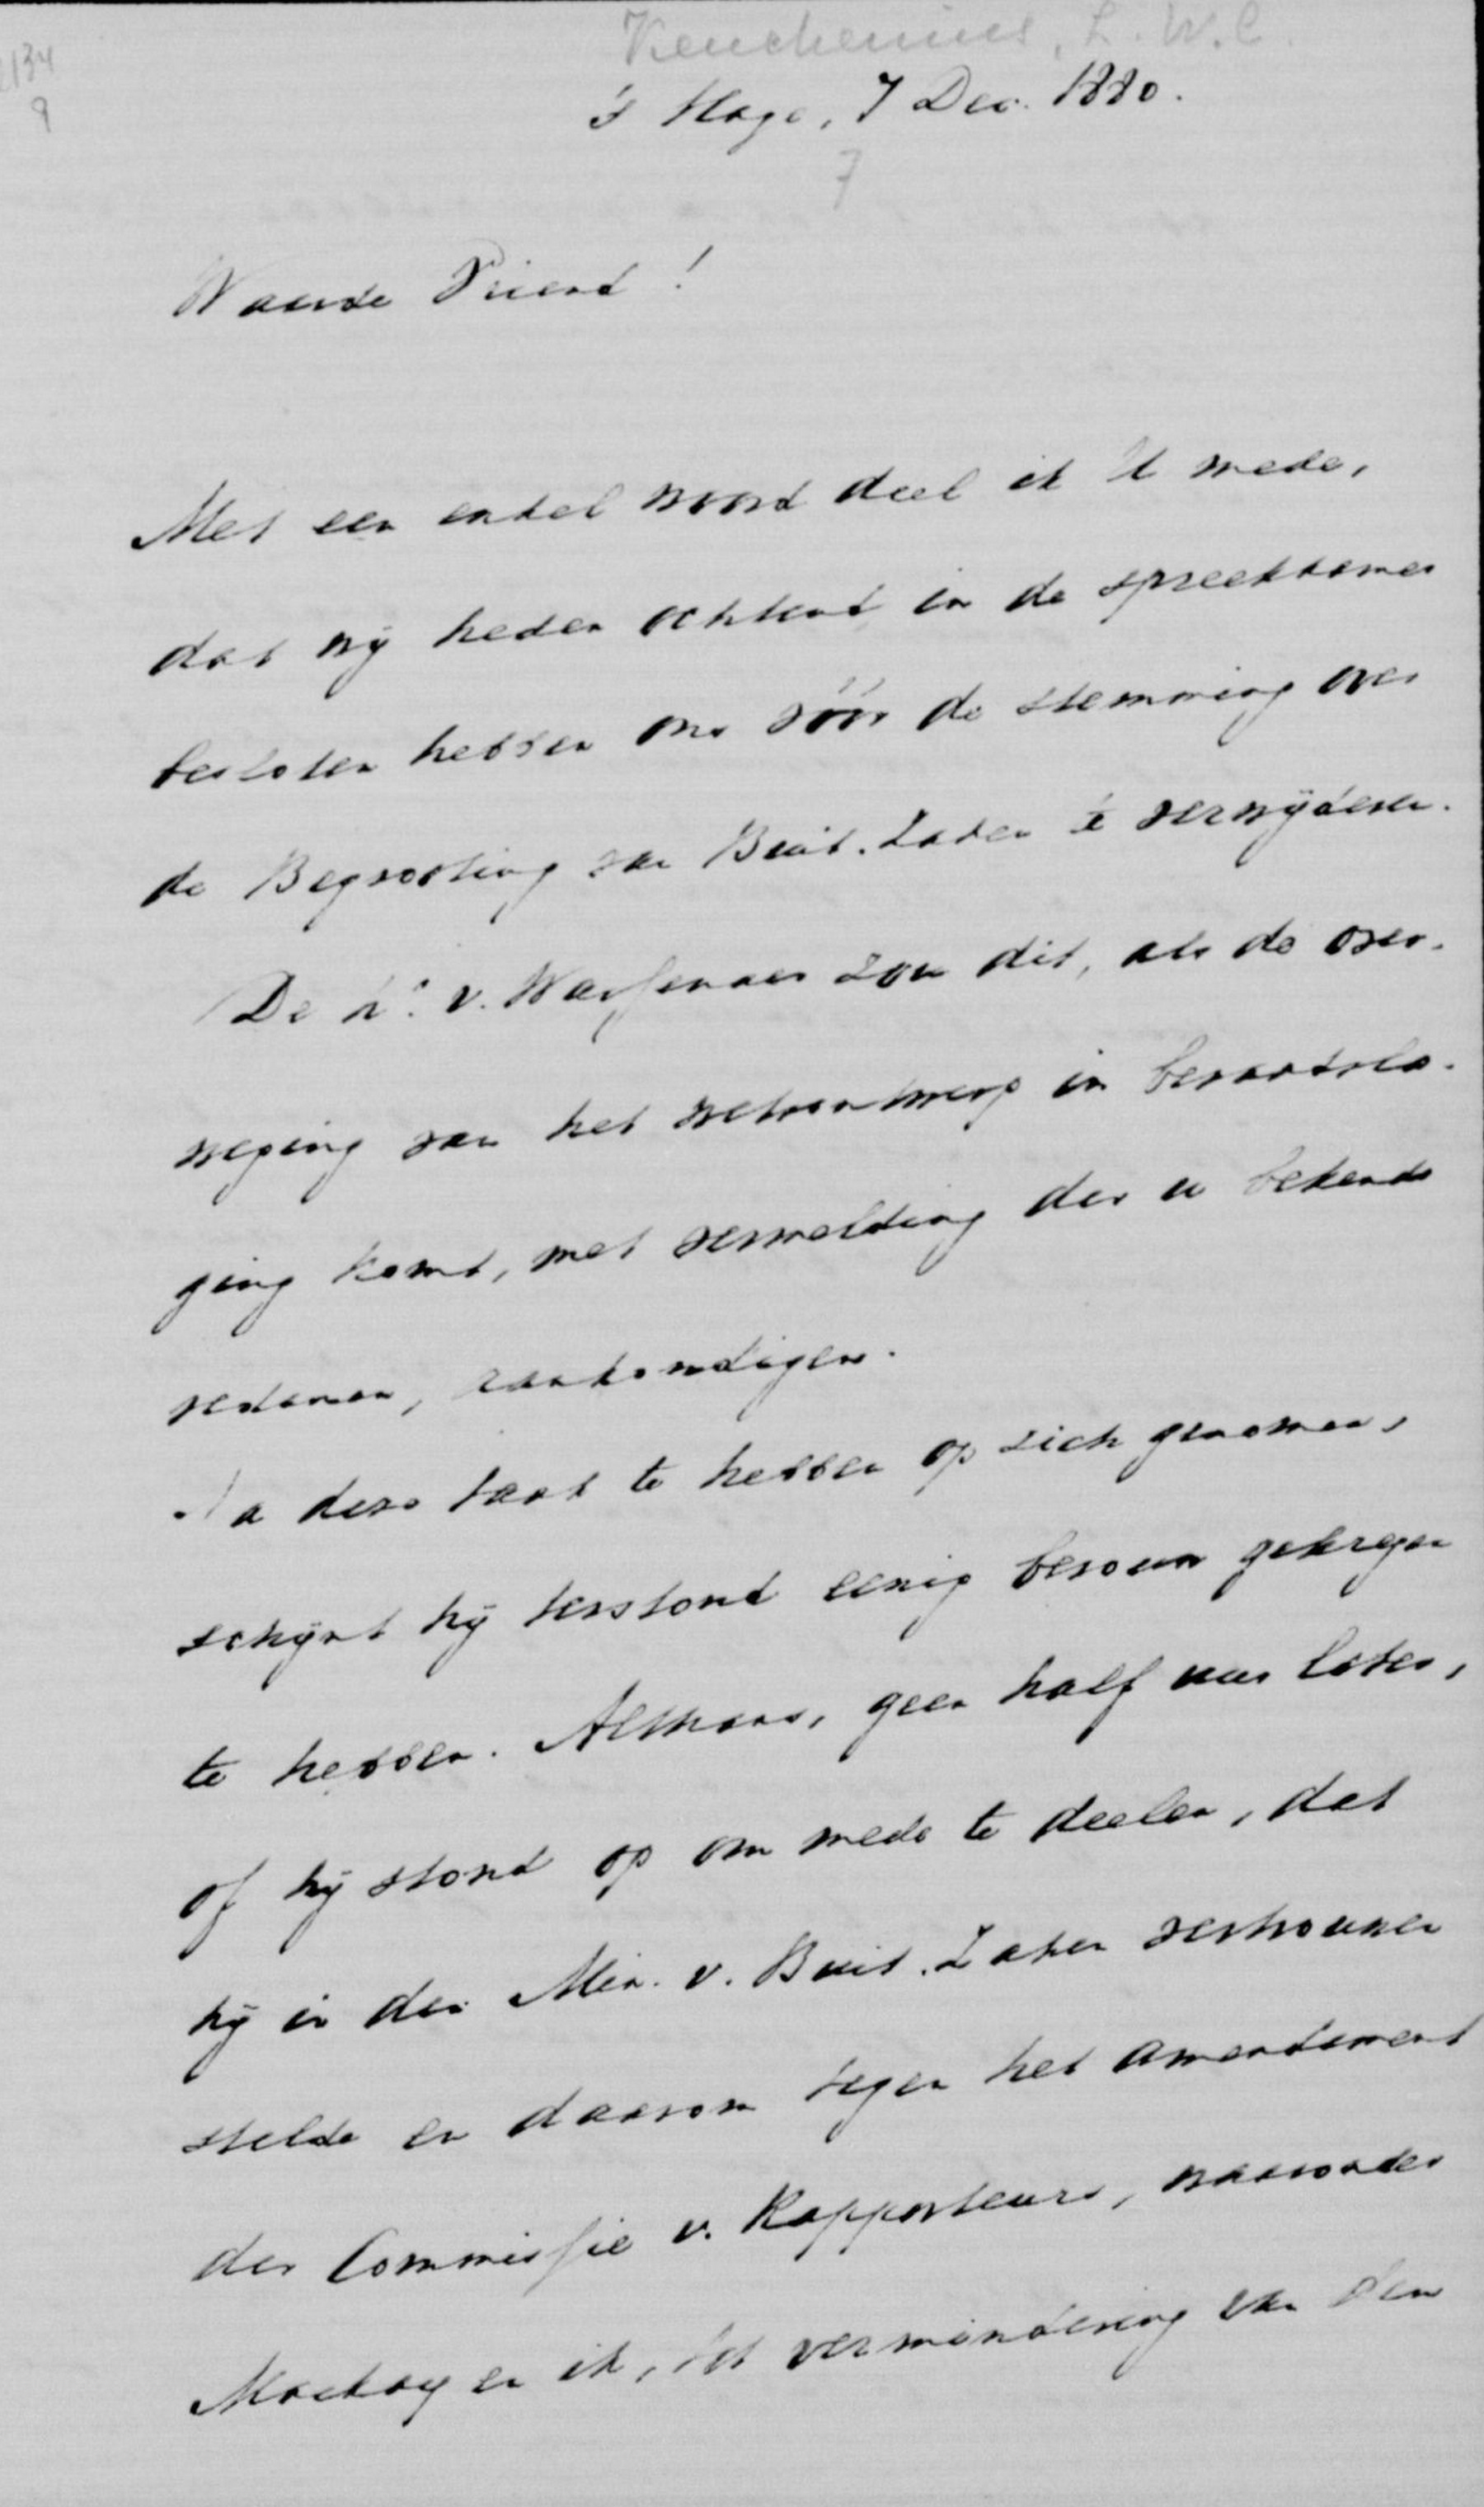 Keuchenius, L. W. C.
2134
9
's Hage, 7 Dec. 1880.
7
Waarde Vriend!
Met een enkel woord deel ik U mede,
dat wij heden ochtend in de spreekkamer
besloten hebben ons vóór de stemming over
de Begrooting van Buit. Zaken te verwijderen.
De Hr. v. Wassenaer zou dit, als de over-
weging van het wetsontwerp in beraadsla-
ging komt, met vermelding der u bekende
redenen, aankondigen.
Na deze taak te hebben op zich genomen,
schijnt hij terstond eenig berouw gekregen
te hebben. Althans, geen half uur later,
of hij stond op om mede te deelen, dat
hij in den Min. v. Buit. Zaken vertrouwen
stelde en daarom tegen het amendement
der Commissie v. Rapporteurs, waaronder
Mackay en ik, tot vermindering van den